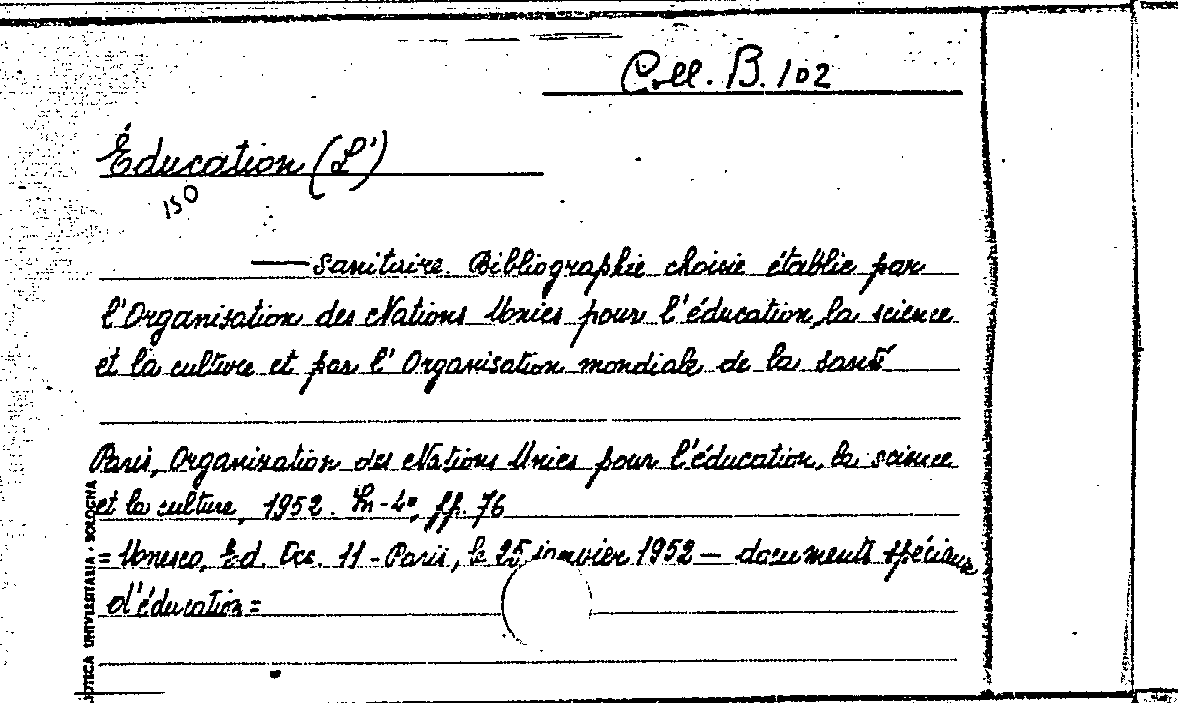 Coll. B. 102
Éducation (L')
150
— sanitaire. Bibliographie choisie établie par
l'Organisation des Nations Unies pour l'éducation, la science
et la culture et par l'Organisation mondiale de la santé
Paris, Organisation des Nations Unies pour l'éducation, la science
et la culture, 1952. In-4°, ff. 76
= Unesco, Ed. Occ. 11 - Paris, le 25 janvier 1952 — documents spéciaux
d'éducation =
OTECA UNIVERSITARIA - BOLOGNA